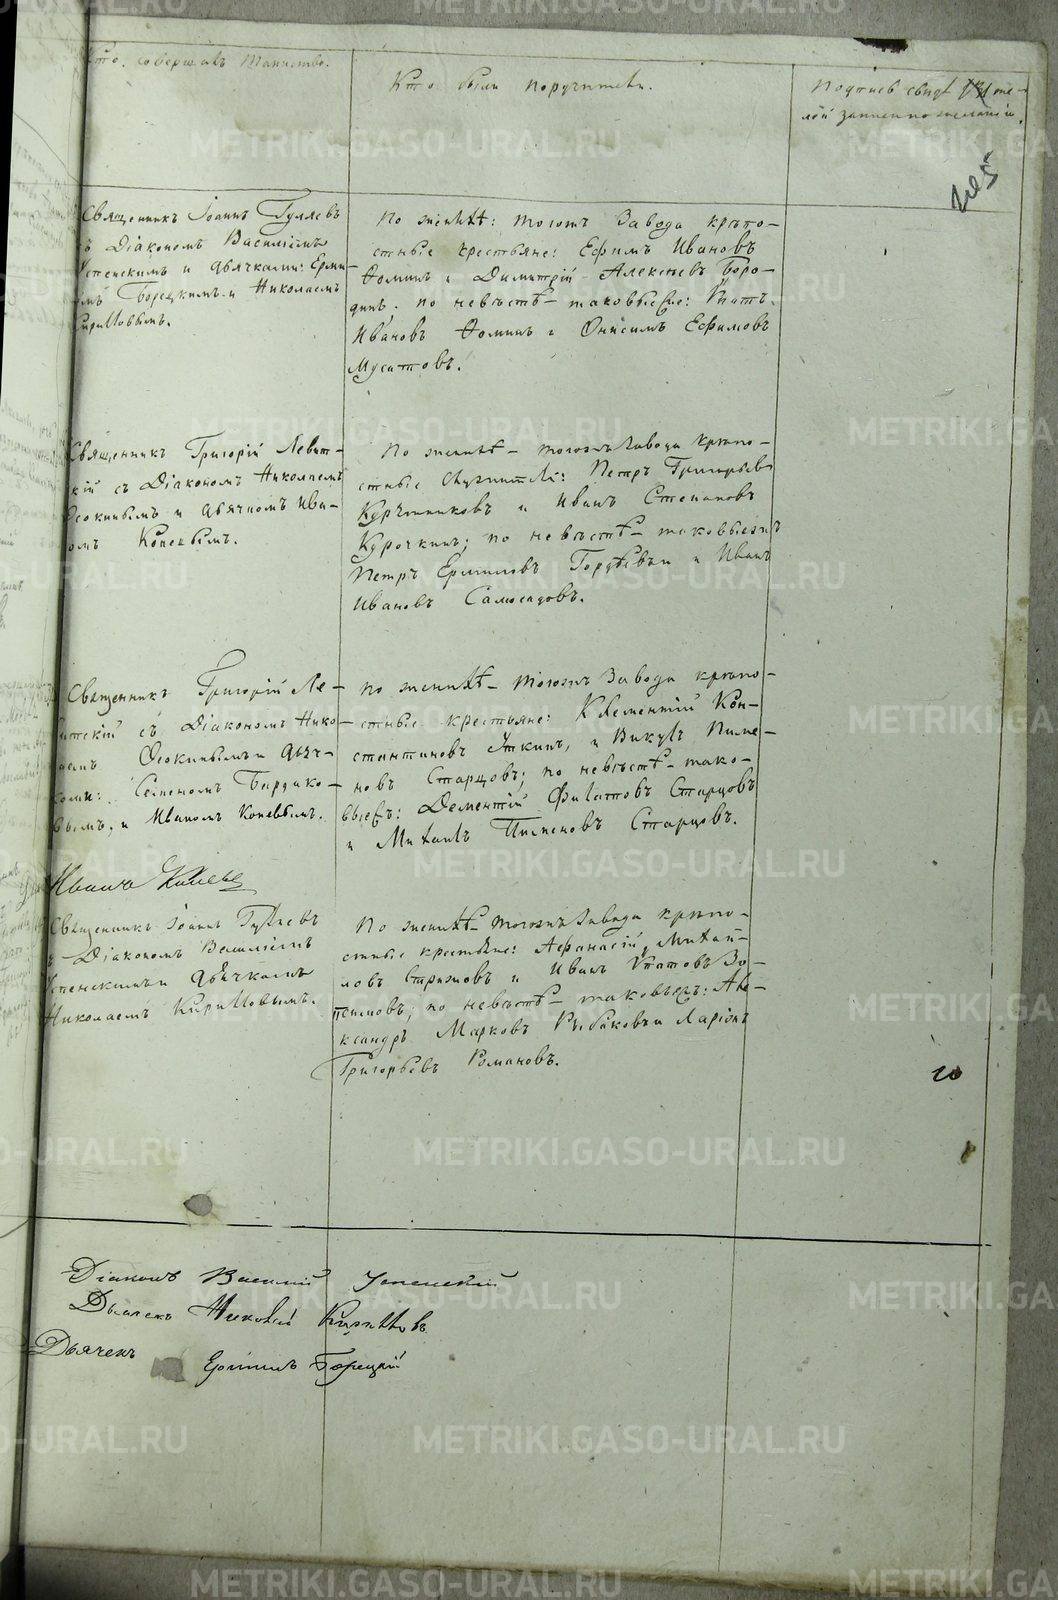 Кто совершалъ таинство.
Кто были поручители.
Подписъ свидѣте-
лей записи по желанію.
Священникъ Іоаннъ Гуляевъ
съ Діакономъ Василіемъ
Успенскимъ и дьячками: Ерми-
ломъ Борецкимъ и Николаемъ
Кирилловымъ.
По женихѣ: тогожъ Завода крѣпо-
стные крестьяне: Ефимъ Ивановъ
Ѳоминъ и Димитрій Алексѣевъ Боро-
динъ. по невѣстѣ – таковыеже: Игнатъ
Ивановъ Ѳоминъ и Онисимъ Ефимовъ
Мусатовъ.
Священникъ Григорій Левит-
скій съ Діакономъ Николаемъ
Ѳеокиным и дьячкомъ Ива-
номъ Коневымъ.
По женихѣ – тогожъ Завода крѣпо-
стные служители: Петръ Григорьевъ
и Иванъ Степановъ
Курочкинъ; по невѣстѣ – таковыежъ
Петръ Ермиловъ Гордѣевъ и Иванъ
Ивановъ Самосадовъ.
Священникъ Григорій Ле-
витскій съ Діакономъ Нико-
лаемъ Ѳеокинымъ и дьяч-
ками: Семеномъ
и Иваномъ Коневымъ.
По женихѣ – тогожъ Завода крѣпо-
стные крестьяне: Клементій Кон-
стантиновъ Уткинъ, и Викулъ Пиме-
новъ Старцовъ; по невѣстѣ – тако-
выежъ: Дементій Филатовъ Старцовъ
и Михаилъ Пименовъ Старцовъ.
Иванъ Коневъ
Священникъ Іоаннъ Гуляевъ
съ Діакономъ Василіемъ
Успенскимъ и дьячкомъ
Николаемъ Кирилловымъ.
По женихѣ – тогожъ Завода крѣпо-
стные крестьяне: Аѳанасій Михай-
ловъ и Иванъ Игнатовъ Зо-
по невѣстѣ – таковыежъ: Але-
ксандръ Марковъ Рыбаковъ и Ларіонъ
Григорьевъ Романовъ.
Діаконъ Василій Успенскій
Дьячекъ Николай Кирилловъ
Дьячекъ Ермилъ Борецкій
METRIKI.GASO-URAL.RU